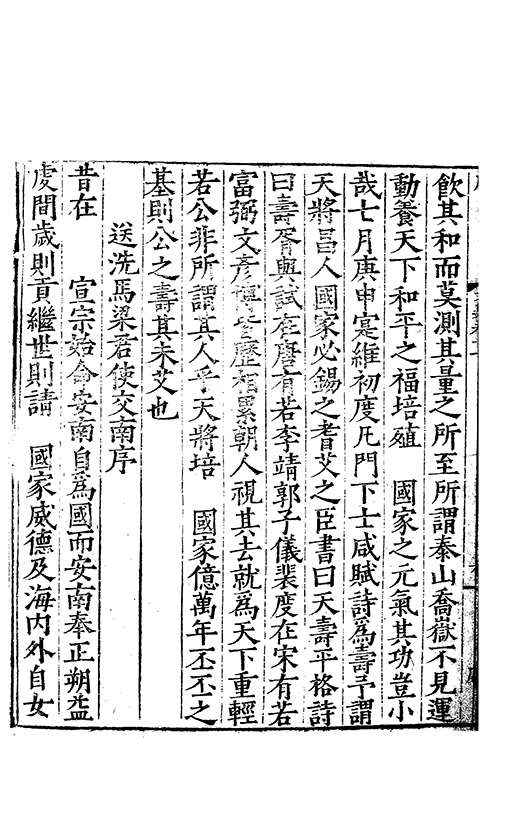 飲其和而莫測其量之所至所謂泰山喬嶽不見運
動養天下和平之福培殖　國家之元氣其功豈小
哉七月庚申寔維初度凡門下士咸賦詩為壽予謂
天將昌人國家必錫之耆艾之臣書曰天壽平格詩
曰壽胥與試在唐有若李靖郭子儀裴度在宋有若
富弼文彥博皆歷相累朝人視其去就為天下重輕
若公非所謂其人乎天將培　國家億萬年丕丕之
基則公之壽其未艾也
送洗馬梁君使交南序
昔在　宣宗始命安南自為國而安南奉正朔益
虔間歲則貢繼世則請　國家威德及海內外自女